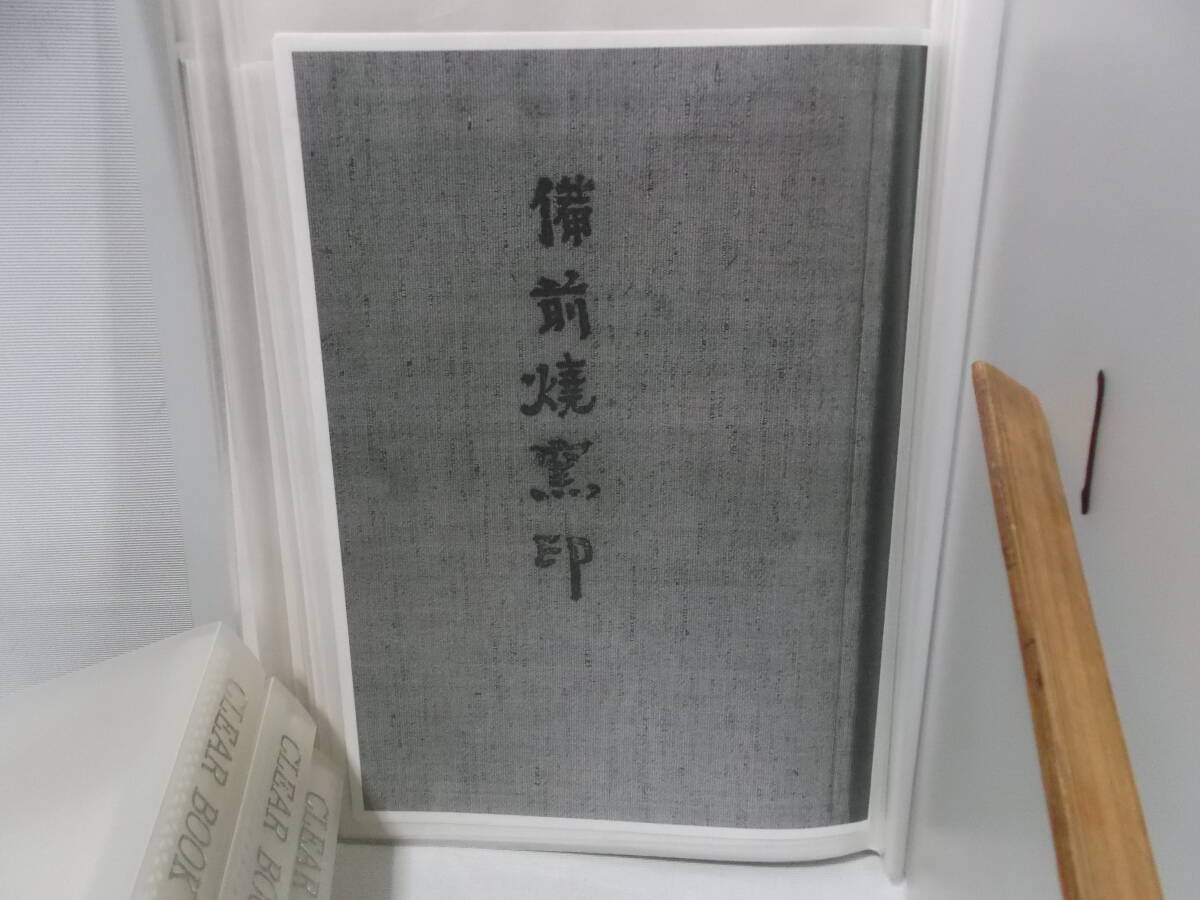 備前燒窯印
CLEAR BOOK
CLEAR BO
CLEAR